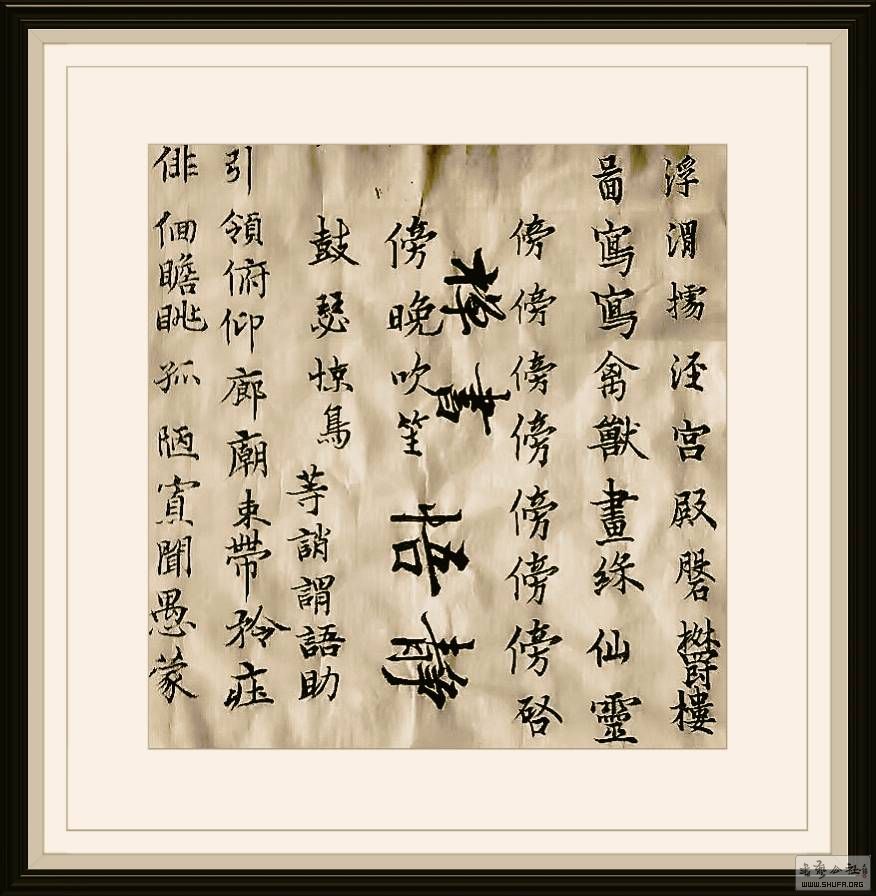 浮渭涇宮殿磐欝樓
啚寫寫禽獸畫綵仙靈
傍傍傍傍傍傍傍啓
書
傍晚吹笙
悟静
鼓瑟惊鳥
等誚謂語助
引領俯仰廊廟束帶矜庄
俳佪瞻眺孤陋寡聞愚蒙
WWW.SHUFA.ORG